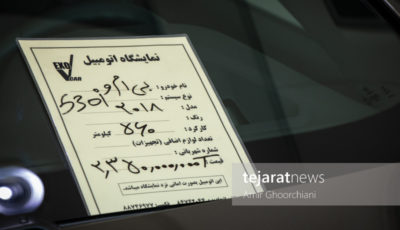 نمایشگاه اتومبیل
EXO
CAR
نام خودرو: بی ام و
نوع سیستم: 530i
مدل: ۲۰۱۸
رنگ:
کارکرد: ۷۶۰ کیلومتر
تعداد لوازم اضافی (تجهیزات)
شماره شهربانی:
قیمت ۲,۳۵۰,۰۰۰,۰۰۰
این اتومبیل بصورت امانی نزد نمایشگاه میباشد.
tejaratnews
Amir Ghoorchiani